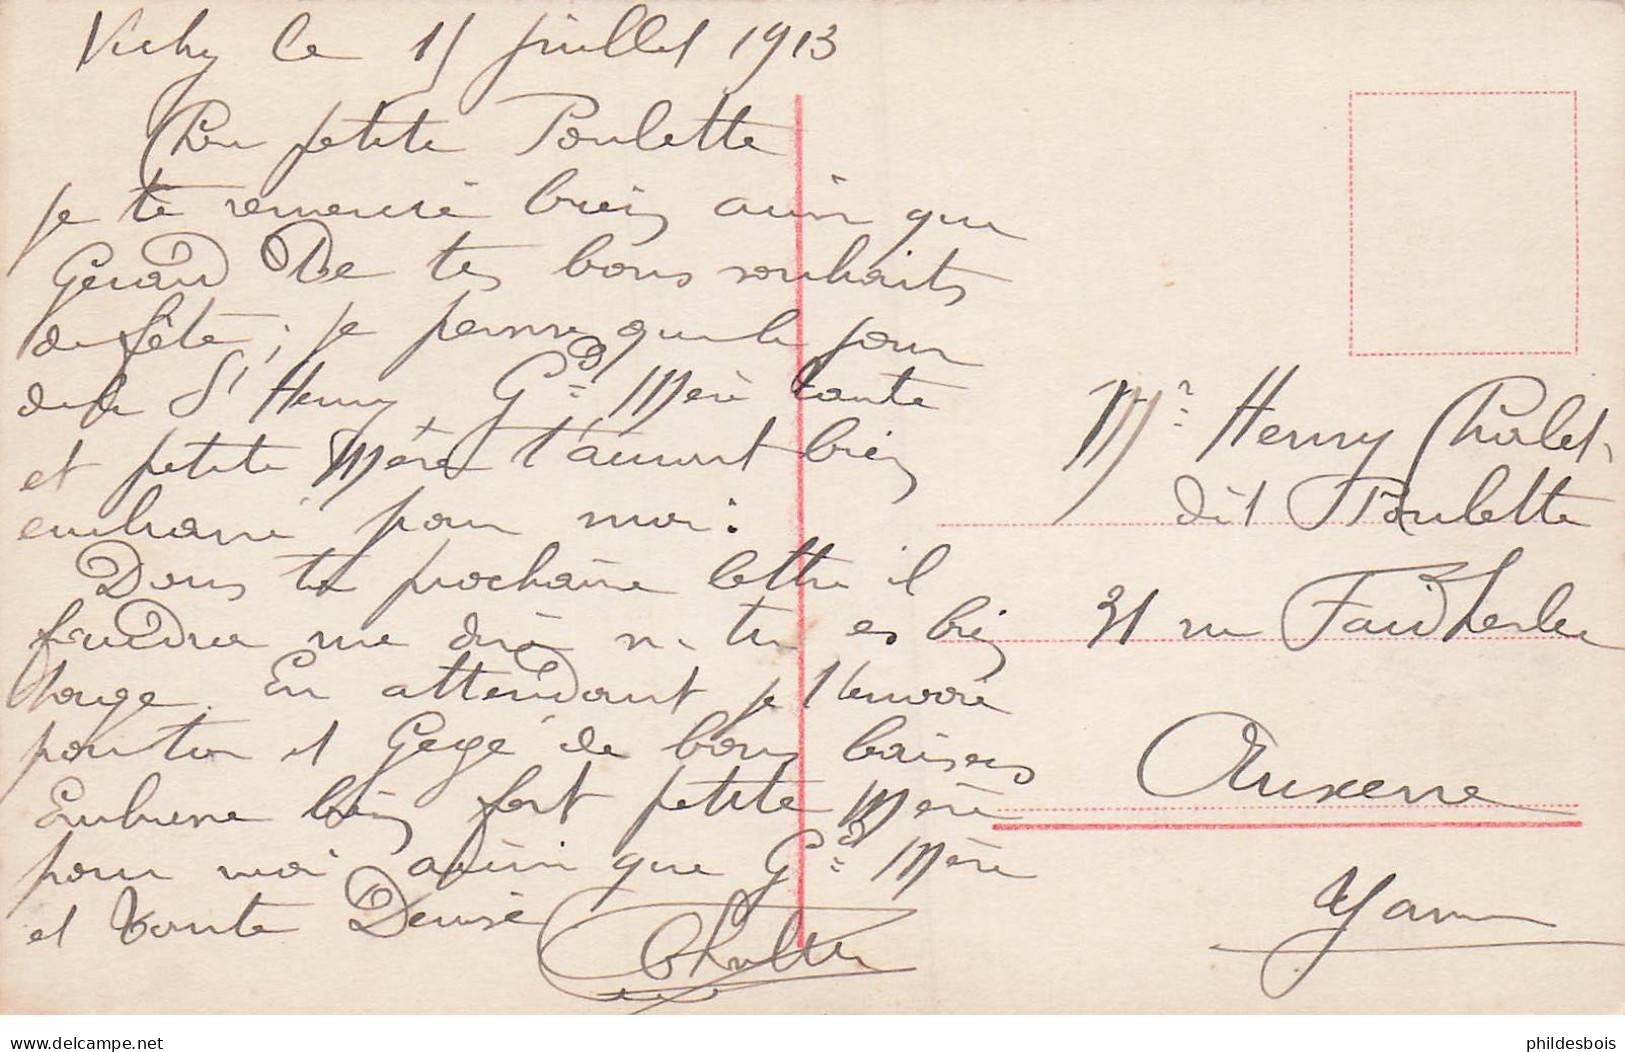 Vichy le 15 juillet 1913
petite Poulette
je te remercie bien ainsi que
Gérard De tes bons souhaits
de fête ; je pense que le jour
de la St Henry, Gd Mère tante
et petite Mère t'auront bien
embrassé pour moi.
Dans ta prochaine lettre il
faudra me dire si tu es bien
sage. En attendant je t'envoie
pour toi et Gégé de bons baisers
Embrasse bien fort petite Mère
pour moi ainsi que Gde Mère
et tante Denise
Mr Henry Cholet
dit Poulette
31 rue Faidherbe
Auxerre
Yonne
delcampe.net
philderbois